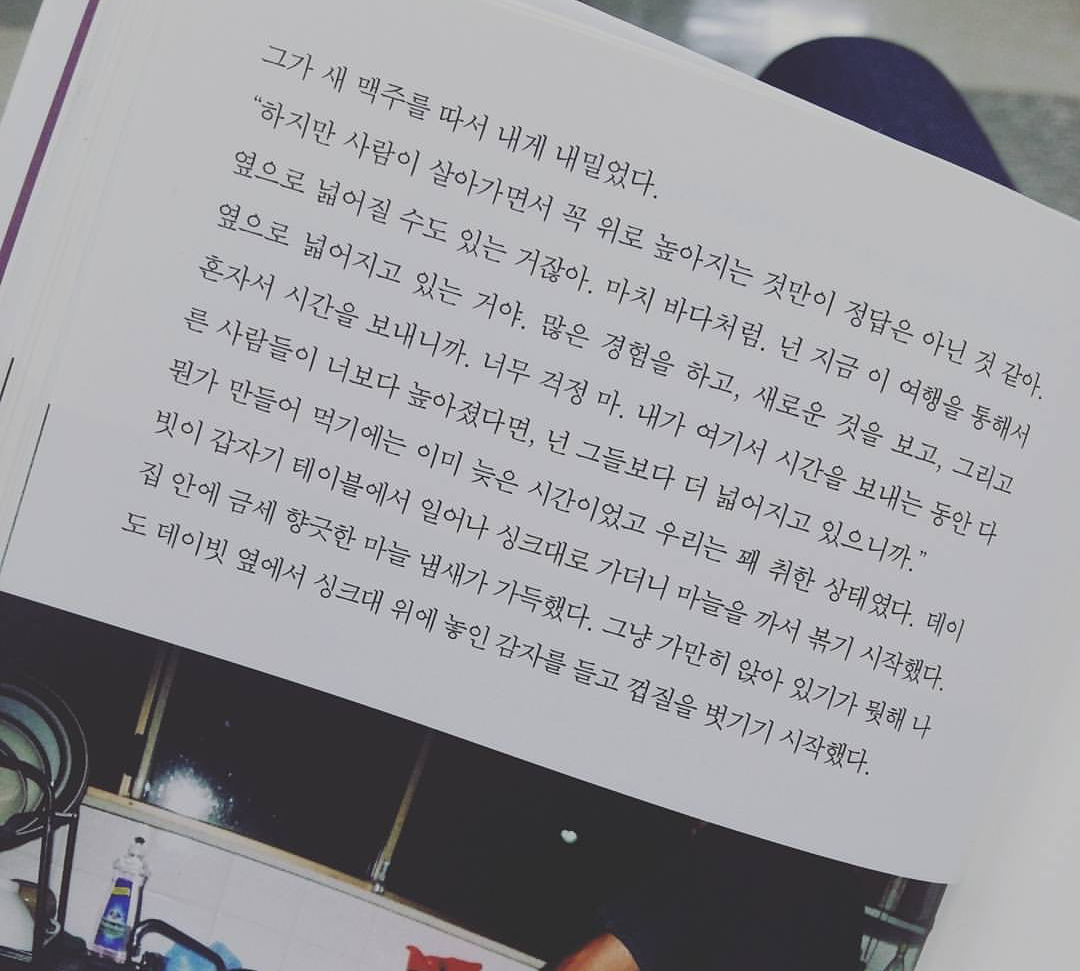 그가 새 맥주를 따서 내게 내밀었다.
“하지만 사람이 살아가면서 꼭 위로 높아지는 것만이 정답은 아닌 것 같아.
옆으로 넓어질 수도 있는 거잖아. 마치 바다처럼. 넌 지금 이 여행을 통해서
옆으로 넓어지고 있는 거야. 많은 경험을 하고, 새로운 것을 보고, 그리고
혼자서 시간을 보내니까. 너무 걱정 마. 내가 여기서 시간을 보내는 동안 다
른 사람들이 너보다 높아졌다면, 넌 그들보다 더 넓어지고 있으니까.”
뭔가 만들어 먹기에는 이미 늦은 시간이었고 우리는 꽤 취한 상태였다. 데이
빗이 갑자기 테이블에서 일어나 싱크대로 가더니 마늘을 까서 볶기 시작했다.
집 안에 금세 향긋한 마늘 냄새가 가득했다. 그냥 가만히 앉아 있기가 뭣해 나
도 데이빗 옆에서 싱크대 위에 놓인 감자를 들고 껍질을 벗기기 시작했다.